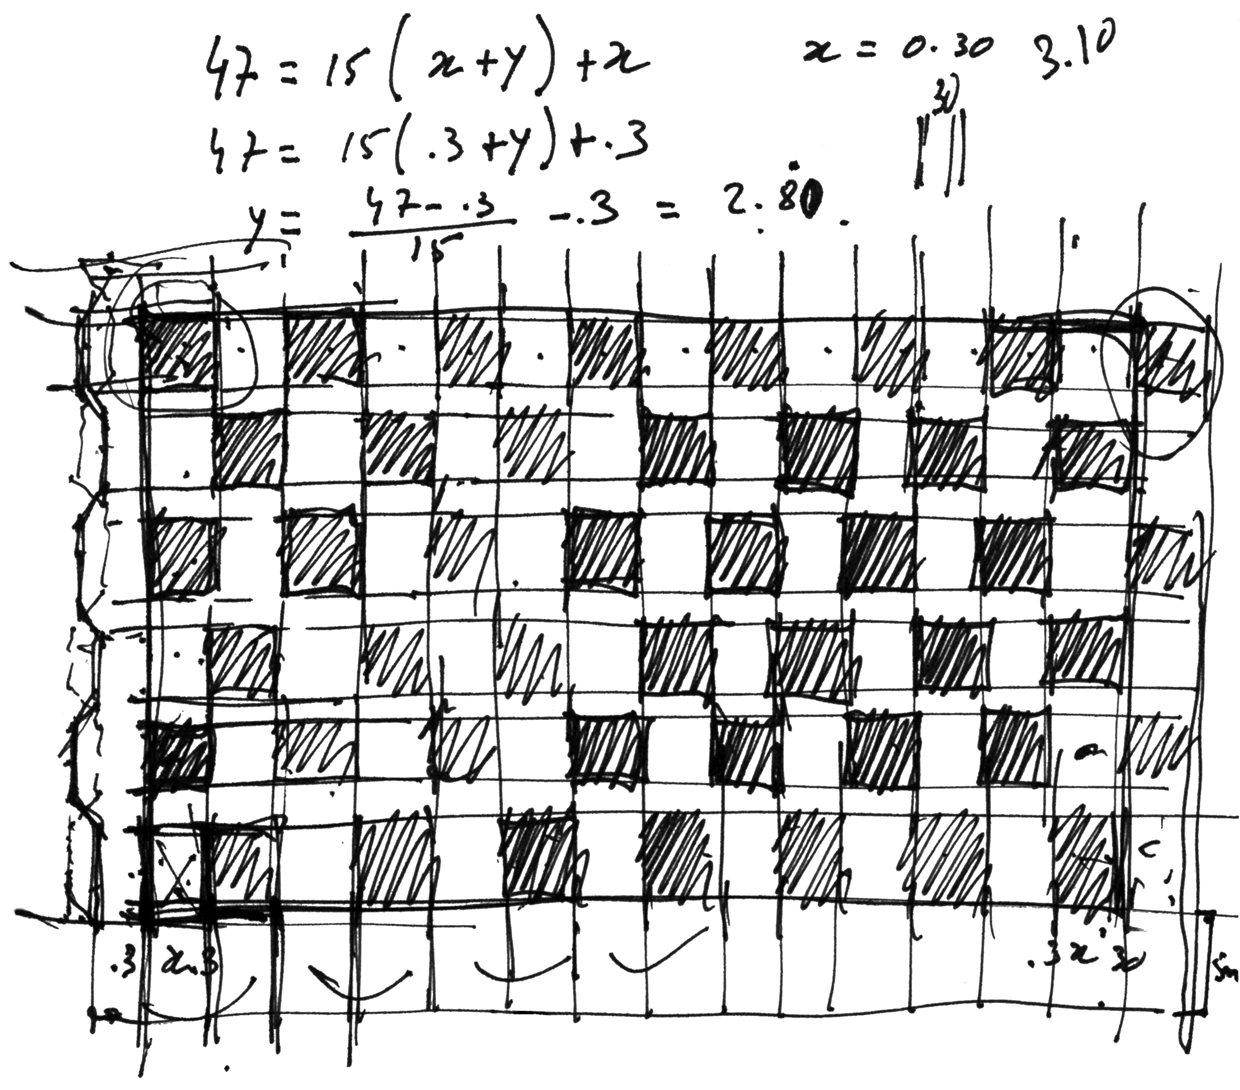 47 = 15 ( x + y ) + x
x = 0.30 3.10
30
47 = 15 ( .3 + y ) + .3
y = 47 - .3 / 15 - .3 = 2.80
.3 x .3
.3 x 30
5m